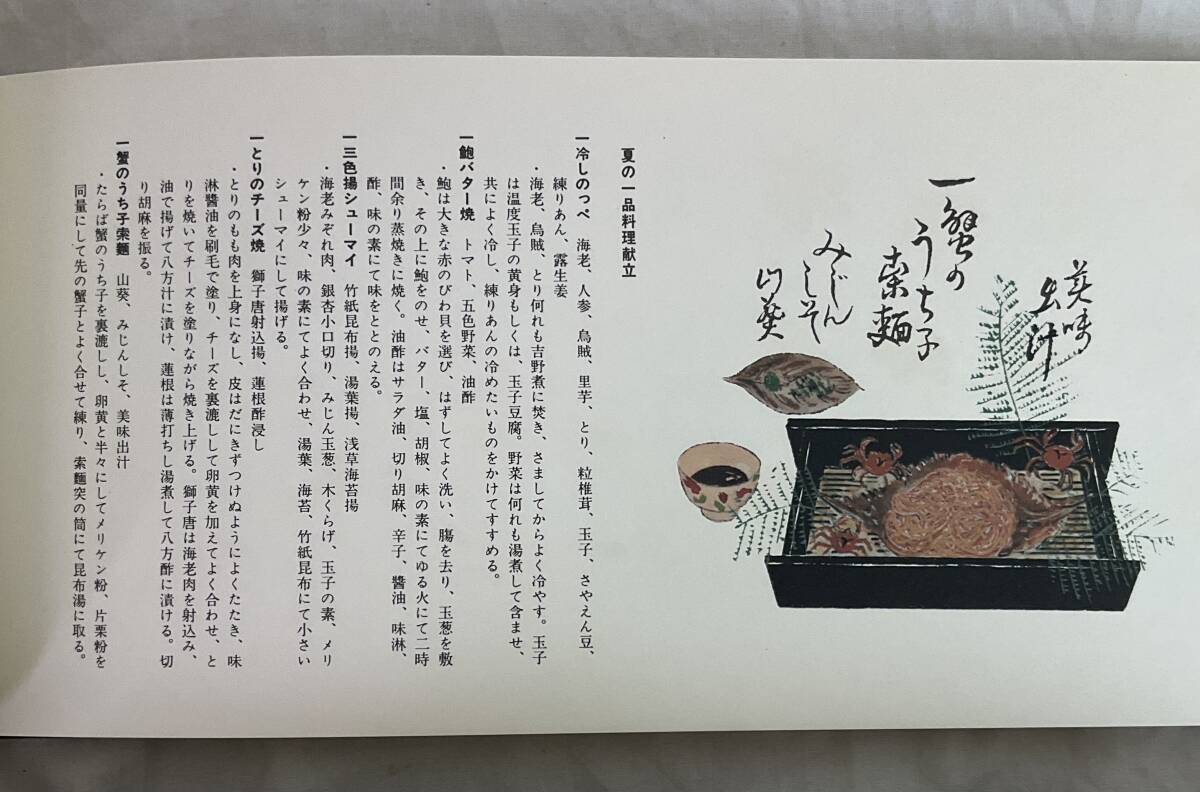 美味
出汁
一蟹の
うち子
素麺
みじん
しそ
山葵
夏の一品料理献立
一冷しのっぺ　海老、人参、烏賊、里芋、とり、粒椎茸、玉子、さやえん豆、
練りあん、露生姜
・海老、烏賊、とり何れも吉野煮に焚き、さましてからよく冷やす。玉子
は温度玉子の黄身もしくは、玉子豆腐。野菜は何れも湯煮して含ませ、
共によく冷し、練りあんの冷めたいものをかけてすすめる。
一鮑バター焼　トマト、五色野菜、油酢
・鮑は大きな赤のびわ貝を選び、はずしてよく洗い、腸を去り、玉葱を敷
き、その上に鮑をのせ、バター、塩、胡椒、味の素にてゆる火にて二時
間余り蒸焼きに焼く。油酢はサラダ油、切り胡麻、辛子、醬油、味淋、
酢、味の素にて味をととのえる。
一三色揚シューマイ　竹紙昆布揚、湯葉揚、浅草海苔揚
・海老みぞれ肉、銀杏小口切り、みじん玉葱、木くらげ、玉子の素、メリ
ケン粉少々、味の素にてよく合わせ、湯葉、海苔、竹紙昆布にて小さい
シューマイにして揚げる。
一とりのチーズ焼　獅子唐射込揚、蓮根酢浸し
・とりのもも肉を上身になし、皮はだにきずつけぬようによくたたき、味
淋醬油を刷毛で塗り、チーズを裏漉しして卵黄を加えてよく合わせ、と
りを焼いてチーズを塗りながら焼き上げる。獅子唐は海老肉を射込み、
油で揚げて八方汁に漬け、蓮根は薄打ちし湯煮して八方酢に漬ける。切
り胡麻を振る。
一蟹のうち子索麺　山葵、みじんしそ、美味出汁
・たらば蟹のうち子を裏漉しし、卵黄と半々にしてメリケン粉、片栗粉を
同量にして先の蟹子とよく合せて練り、索麺突の筒にて昆布湯に取る。